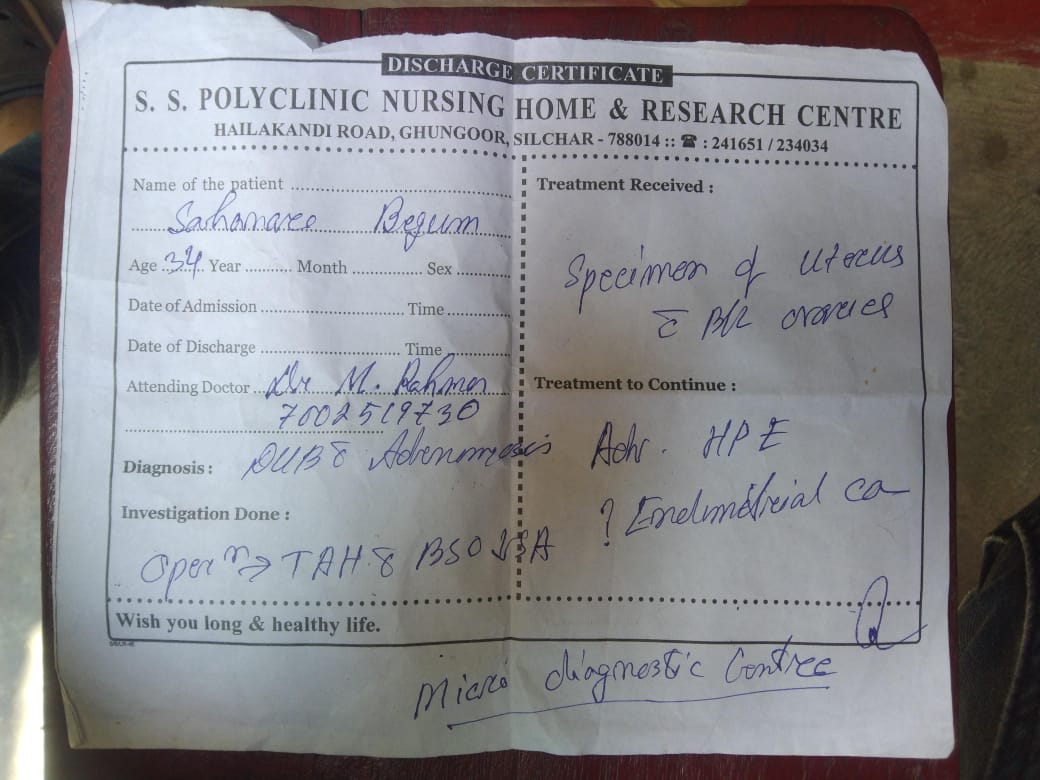 DISCHARGE CERTIFICATE
S. S. POLYCLINIC NURSING HOME & RESEARCH CENTRE
HAILAKANDI ROAD, GHUNGOOR, SILCHAR - 788014 :: ☎ : 241651 / 234034
Name of the patient ..............................
Begum
Age 34 Year .......... Month ............... Sex ............
Date of Admission .............................. Time ..............
Date of Discharge .............................. Time ..............
Attending Doctor Dr M. Rahman
7002519730
Diagnosis : DUB c̄ Adenomyosis
Investigation Done :
Opern → TAH c̄ BSO
Wish you long & healthy life.
Treatment Received :
Specimen of Uterus
c̄ B/L ovaries
Treatment to Continue :
Adv. HPE
? Endometrial ca
Micro diagnostic Centree